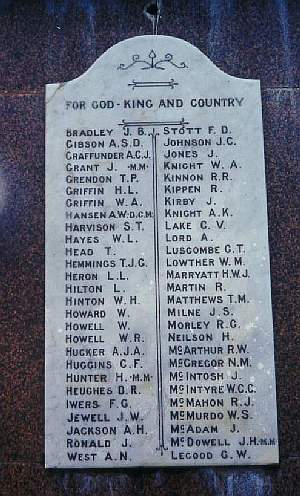 FOR GOD - KING AND COUNTRY
BRADLEY J. B.
GIBSON A.S.D.
GRAFFUNDER A.C.J.
GRANT J. M.M.
GRENDON T.P.
GRIFFIN H.L.
GRIFFIN W.A.
HANSEN A.W. D.C.M.
HARVISON S.T.
HAYES W.L.
HEAD T.
HEMMINGS T.J.G.
HERON L.L.
HILTON L.
HINTON W.H.
HOWARD W.
HOWELL W.
HOWELL W.R.
HUCKER A.J.A.
HUGGINS C.F.
HUNTER H. M.M.
HEUGHES D.R.
IWERS F.G.
JEWELL J.W.
JACKSON A.H.
RONALD J.
WEST A.N.
STOTT F.D.
JOHNSON J.C.
JONES J.
KNIGHT W.A.
KINNON R.R.
KIPPEN R.
KIRBY J.
KNIGHT A.K.
LAKE C.V.
LORD A.
LUSCOMBE C.T.
LOWTHER W.M.
MARRYATT H.W.J.
MARTIN R.
MATTHEWS T.M.
MILNE J.S.
MORLEY R.G.
NEILSON H.
McARTHUR R.W.
McGREGOR N.M.
McINTOSH J.
McINTYRE W.C.C.
McMAHON R.J.
McMURDO W.S.
McADAM J.
McDOWELL J.H. M.M.
LEGOOD G.W.